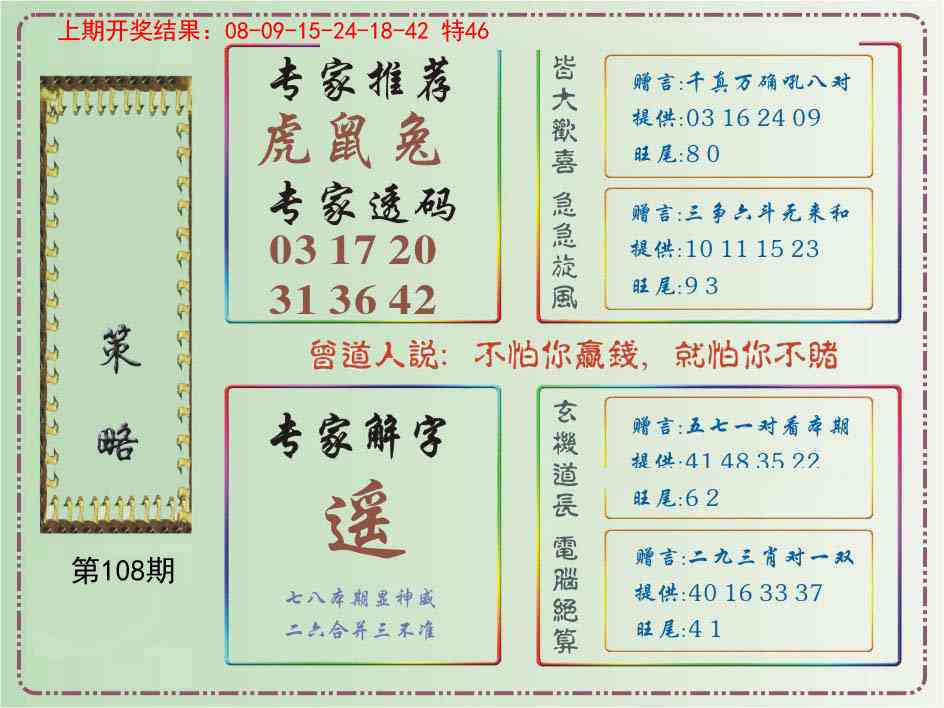 上期开奖结果：08-09-15-24-18-42 特46
策略
第108期
专家推荐
虎鼠兔
专家透码
03 17 20
31 36 42
皆大歡喜
赠言:千真万确吼八对
提供:03 16 24 09
旺尾:8 0
急急旋風
赠言:三争六斗无来和
提供:10 11 15 23
旺尾:9 3
曾道人説：不怕你贏錢，就怕你不賭
专家解字
遥
七八本期显神威
二六合并三不准
玄機道長
赠言:五七一对看本期
提供:41 48 35 22
旺尾:6 2
電腦絕算
赠言:二九三肖对一双
提供:40 16 33 37
旺尾:4 1